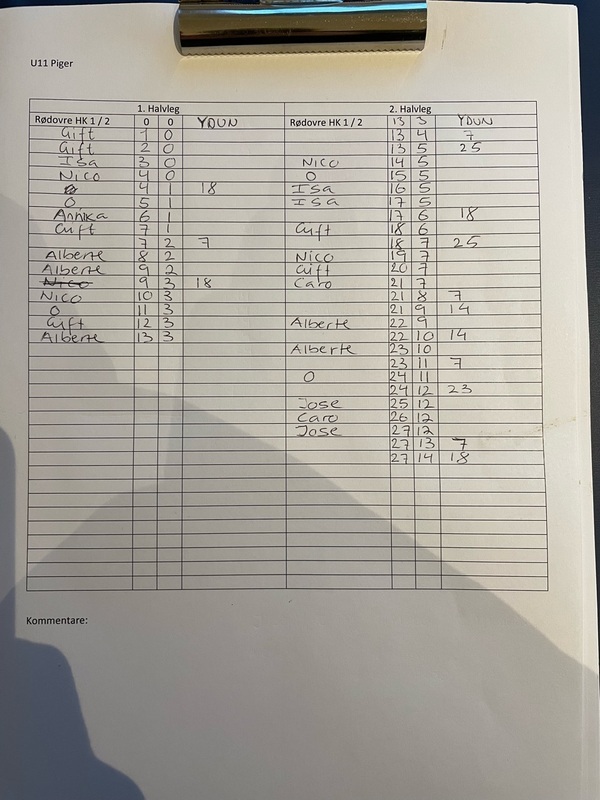 U11 Piger
1. Halvleg 2. Halvleg
Rødovre HK 1 / 2 0 0 YDUN Rødovre HK 1 / 2 13 3 YDUN
Gift 1 0 13 4 7
Gift 2 0 13 5 25
Isa 3 0 Nico 14 5
Nico 4 0 O 15 5
4 1 18 Isa 16 5
O 5 1 Isa 17 5
Annika 6 1 17 6 18
Gift 7 1 Gift 18 6
7 2 7 18 7 25
Alberte 8 2 Nico 19 7
Alberte 9 2 Gift 20 7
Nico 9 3 18 Caro 21 7
Nico 10 3 21 8 7
O 11 3 21 9 14
Gift 12 3 Alberte 22 9
Alberte 13 3 22 10 14
Alberte 23 10
23 11 7
O 24 11
24 12 23
Jose 25 12
Caro 26 12
Jose 27 12
27 13 7
27 14 18
Kommentare: